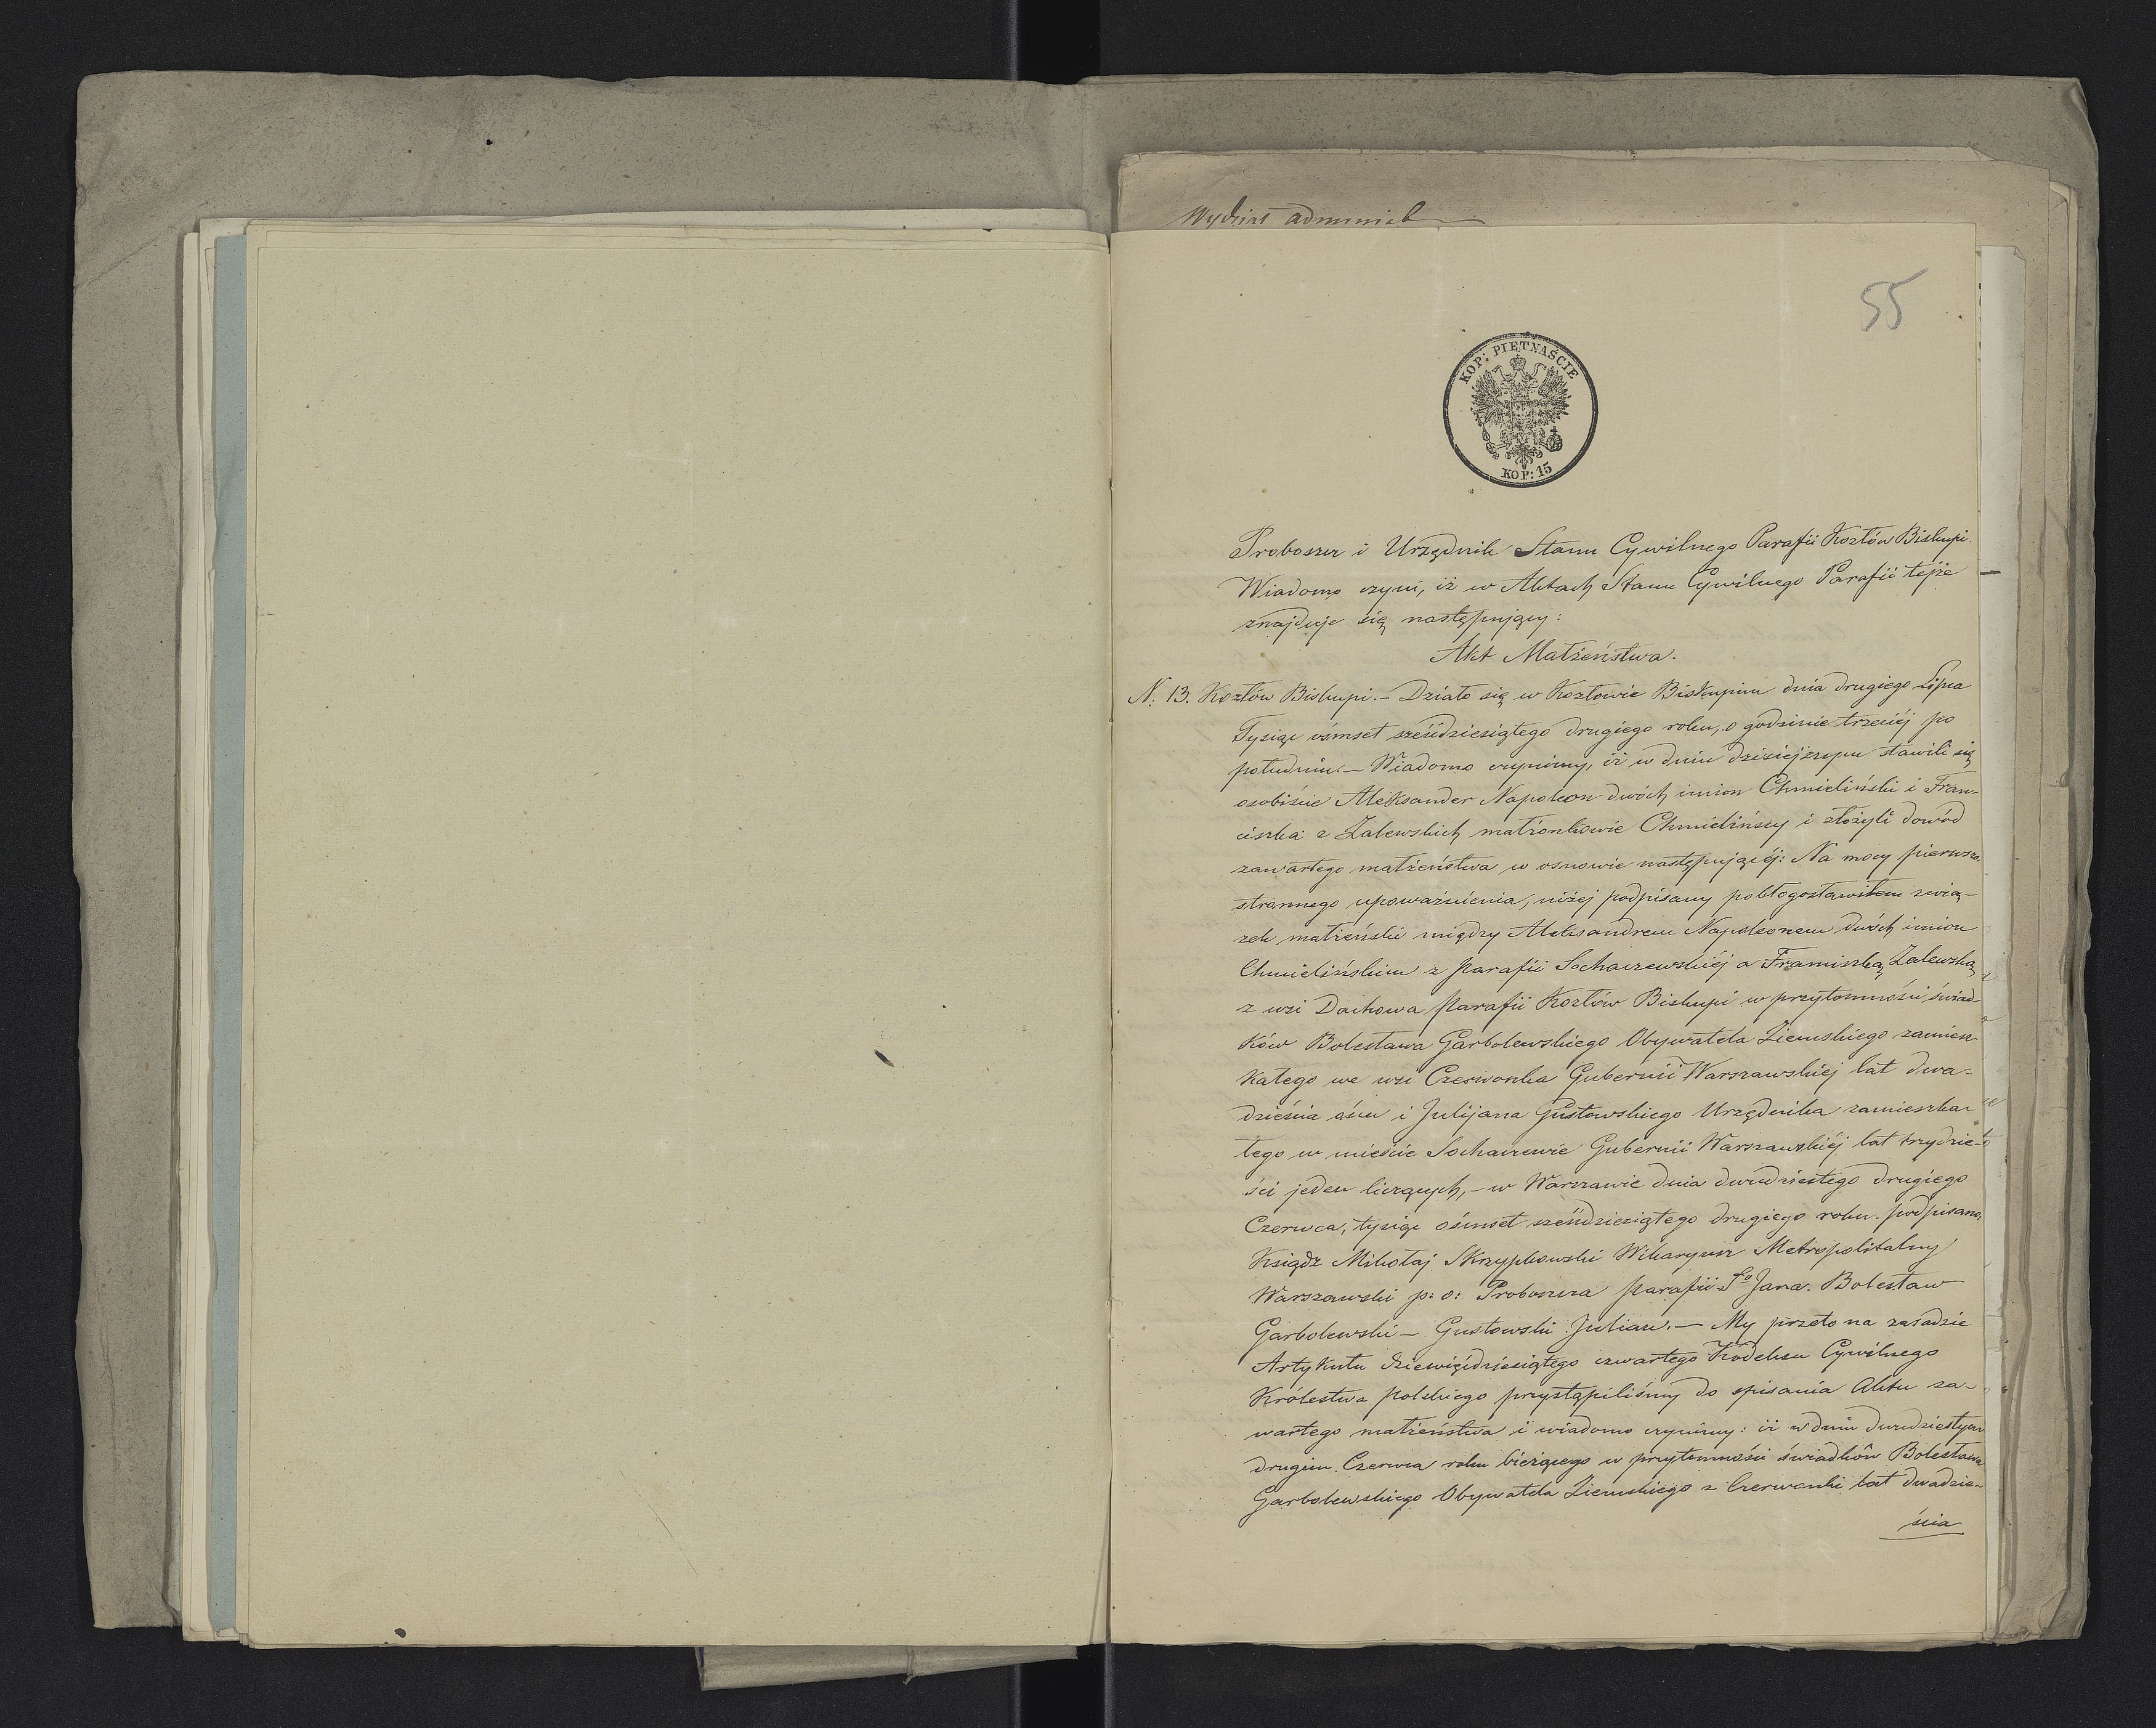 Wydział administ
55
KOP: PIĘTNAŚCIE
KOP: 15
Proboszcz i Urzędnik Stanu Cywilnego Parafii Kozłów Biskupi.
Wiadomo czyni, iż w Aktach Stanu Cywilnego Parafii tejże
znajduje się następujący:
Akt Małżeństwa.
N: 13. Kozłów Biskupi. — Działo się w Kozłowie Biskupim dnia drugiego Lipca
Tysiąc ośmset sześćdziesiątego drugiego roku, o godzinie trzeciéj po
południu. — Wiadomo czynimy, iż w dniu dzisiejszym stawili się
osobiście Aleksander Napoleon dwóch imion Chmieliński i Fran-
ciszka z Zalewskich małżonkowie Chmielińscy i złożyli dowód
zawartego małżeństwa w osnowie następującéj: Na mocy pierwszo-
stronnego upoważnienia, niżej podpisany pobłogosławiłem zwią-
zek małżeński między Aleksandrem Napoleonem dwóch imion
Chmielińskim z parafii Sochaczewskiéj a Franciszką Zalewską
z wsi Dachowa parafii Kozłów Biskupi w przytomności świad-
ków Bolesława Garbolewskiego Obywatela Ziemskiego zamiesz-
kałego we wsi Czerwonka Gubernii Warszawskiéj lat dwa-
dzieścia ośm i Julijana Gustowskiego Urzędnika zamieszka-
łego w mieście Sochaczewie Gubernii Warszawskiéj lat trzydzie-
ści jeden liczących, — w Warszawie dnia dwudziestego drugiego
Czerwca, tysiąc ośmset sześćdziesiątego drugiego roku. podpisano,
Ksiądz Mikołaj Skrzypkowski Wikaryusz Metropolitalny
Warszawski p: o: Proboszcza parafii Sgo Jana. Bolesław
Garbolewski — Gustowski Julian. — My przeto na zasadzie
Artykułu dziewięćdziesiątego czwartego Kodeksu Cywilnego
Królestwa polskiego przystąpiliśmy do spisania Aktu za-
wartego małżeństwa i wiadomo czynimy: iż w dniu dwudziestym
drugim Czerwca roku bieżącego w przytomności świadków Bolesława
Garbolewskiego Obywatela Ziemskiego z Czerwonki lat dwadzie-
ścia